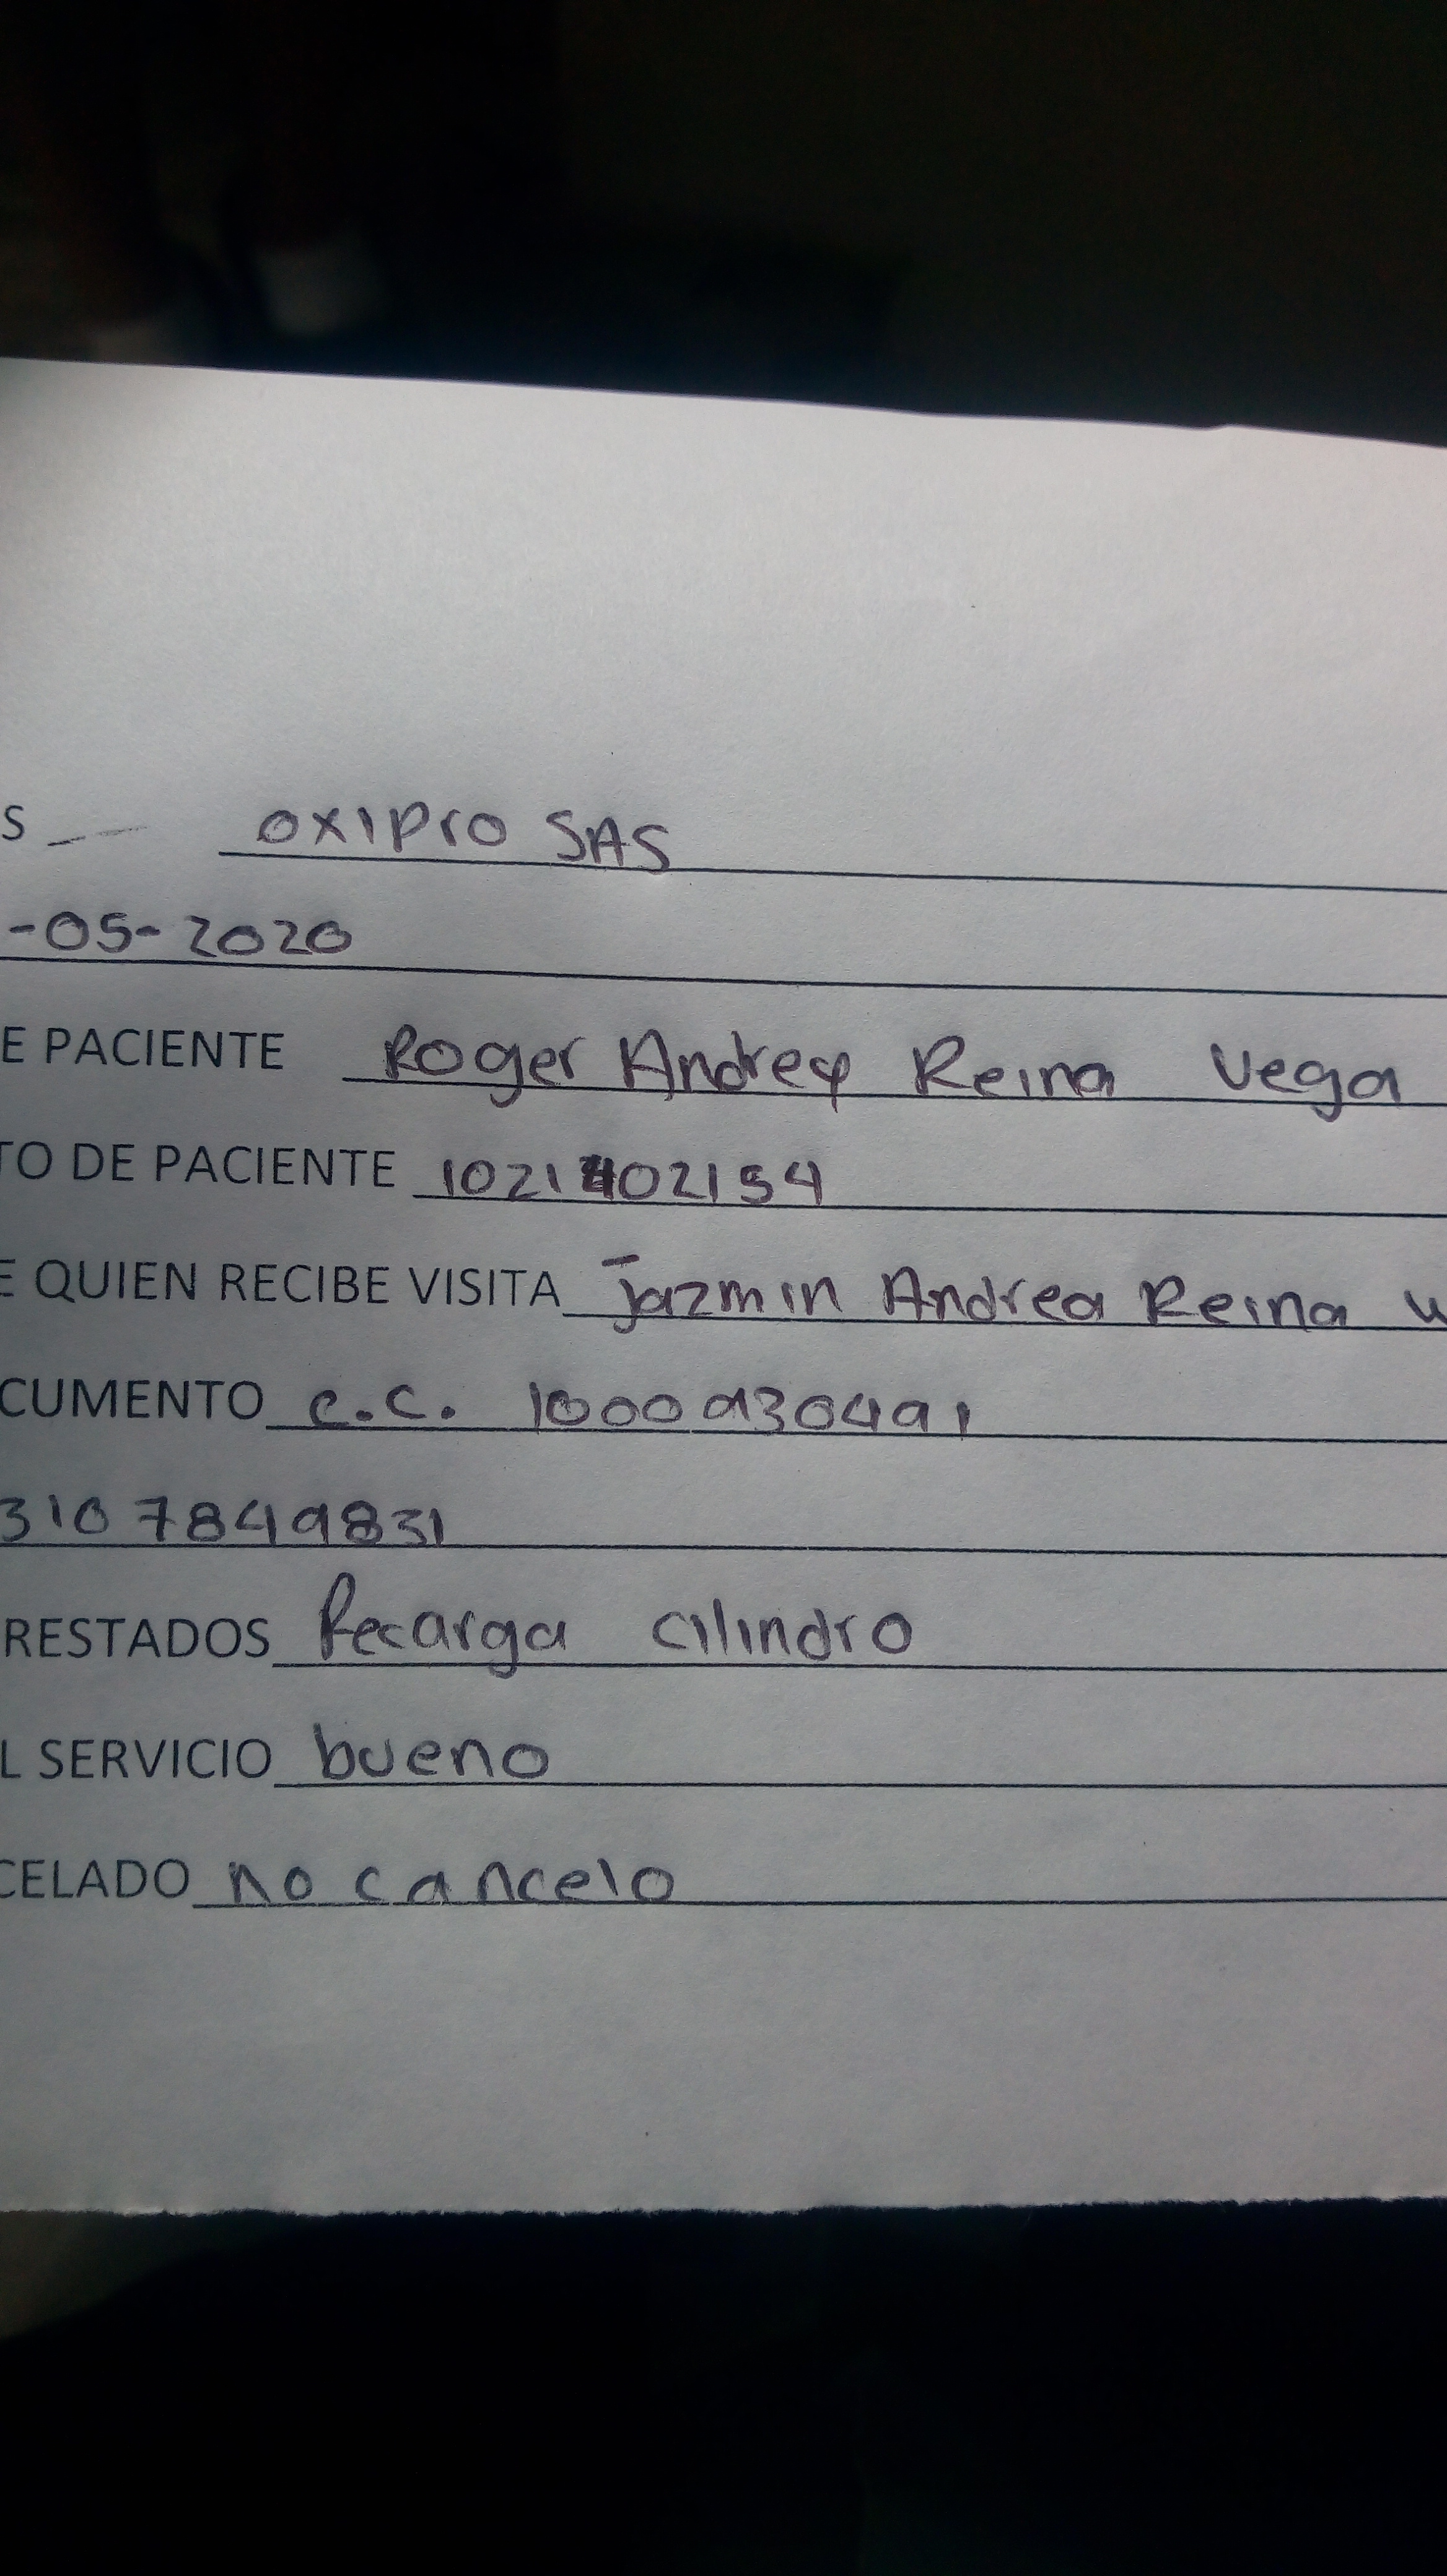 S OXIPRO SAS
-05-2020
E PACIENTE Roger Andrey Reina Vega
TO DE PACIENTE 1021402154
E QUIEN RECIBE VISITA Jazmin Andrea Reina
CUMENTO C.C. 1000930491
3107849831
RESTADOS Recarga cilindro
L SERVICIO bueno
CELADO no cancelo